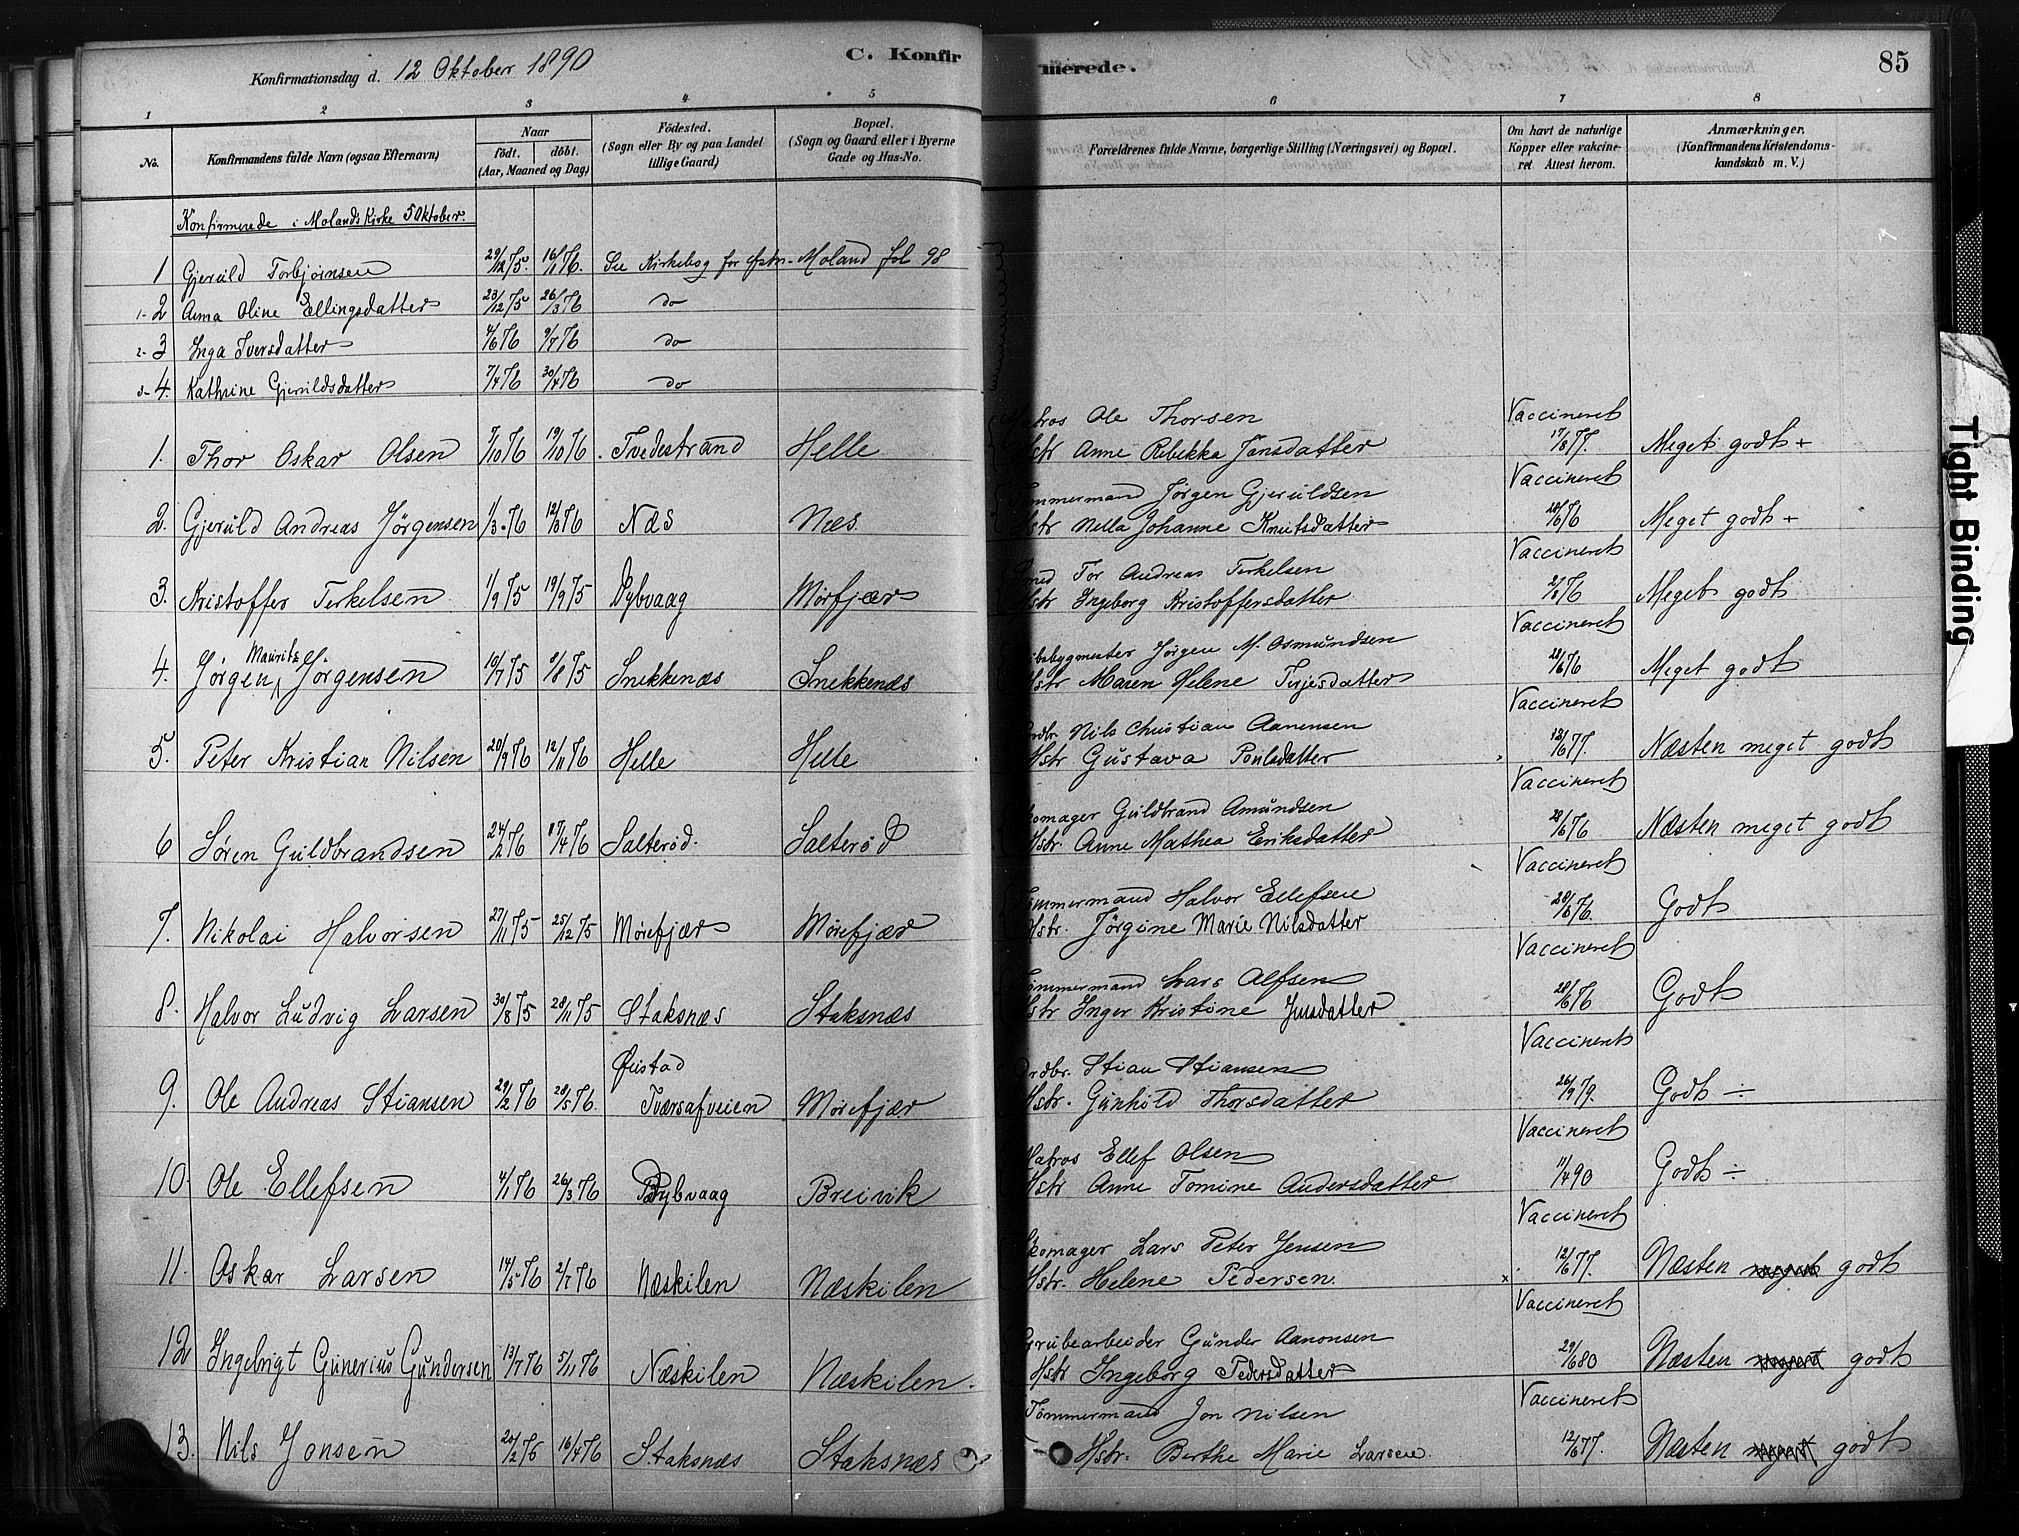 Konfirmationsdag d. 12 Oktober 1890
C. Konfirmerede.
85
1 2 3 4 5 6 7 8
No.
Konfirmandens fulde Navn (ogsaa Efternavn)
Naar
født. døbt.
(Aar, Maaned og Dag)
Fødested.
(Sogn eller By og paa Landet
tillige Gaard)
Bopæl.
(Sogn og Gaard eller i Byerne
Gade og Hus-No.
Forældrenes fulde Navne, borgerlige Stilling (Næringsvei) og Bopæl.
Om havt de naturlige
Kopper eller vakcine-
ret. Attest herom.
Anmærkninger.
(Konfirmandens Kristendoms-
kundskab m. V.)
Konfirmerede i Molands Kirke 5 Oktober.
1 Gjeruld Torbjørnsen 29/12 75. 16/1 76. Se Kirkebog for Østr-Moland fol 98
1- 2 Anna Oline Ellingsdatter 23/12 75 26/3 76 do
2- 3 Inga Iversdatter 4/6 76 9/7 76 do
3- 4. Kathrine Gjeruldsdatter 7/4 76 30/4 76 do
Matros Ole Thorsen Vaccineret
1. Thor Oskar Olsen 7/10 76 19/10 76 Tvedestrand Helle Hstr Anne Rebekka Jansdatter 17/8 77. Meget godt +
Tømmermand Jørgen Gjeruldsen Vaccineret
2. Gjeruld Andreas Jørgensen 1/3 76 12/3 76 Næs Næs. Hstr Nella Johanne Knutsdatter 28/6 76 Meget godt +
Smed Tor Andreas Terkelsen Vaccineret
3. Kristoffer Terkelsen 1/9 75 19/9 75 Dybvaag Mørfjær Hstr Ingeborg Kristoffersdatter Meget godt
Skibsbygmester Jørgen M. Osmundsen Vaccineret
4. Jørgen Maurits Jørgensen 10/7 75 8/8 75 Snekkenæs Snekkenæs Hstr Maren Helene Terjesdatter 28/6 76 Meget godt
Nils Christian Aanensen Vaccineret
5. Peter Kristian Nilsen 20/9 76 12/11 76 Helle Helle Hstr Gustava Poulsdatter 12/6 77. Næsten meget godt
Skomager Guldbrand Amundsen Vaccineret
6 Søren Guldbrandsen 24/2 76 17/4 76 Salterød. Salterød Hstr. Anne Mathea Eriksdatter 28/6 76 Næsten meget godt
Tømmermand Halvor Ellefsen Vaccineret
7. Nikolai Halvorsen 27/11 75 25/12 75 Mørefjær Mørefjær Hstr. Jørgine Marie Nilsdatter 28/6 76. Godt
Tømmermand Lars Alfsen Vaccineret
8. Halvor Ludvig Larsen 30/8 75 28/11 75 Staksnæs Staksnæs Hstr Inger Kristine Jensdatter 28/6 76 Godt
Øiestad Jordbr. Stian Stiansen Vaccineret
9. Ole Andreas Stiansen 29/2 76 28/5 76. Tværsafveien Mørefjær Hstr. Gunhild Thorsdatter 26/9 79. Godt ÷
Matros Ellef Olsen Vaccineret
10. Ole Ellefsen 4/1 76 26/3 76 Dybvaag Breivik Hstr Anne Tomine Andersdatter 11/4 90 Godt ÷
Skomager Lars Peter Jensen Vaccineret
11. Oskar Larsen 14/5 76 2/7 76 Næskilen Næskilen Hstr. Helene Pedersen. 12/6 77. Næsten meget godt
Grubearbeider Gunder Aanonsen Vaccineret
12 Ingebrigt Gunerius Gundersen 13/7 76 5/11 76 Næskilen Næskilen. Hstr Ingeborg Pedersdatter 29/6 80 Næsten meget godt
Tømmermand Jon Nilsen Vaccineret
13. Nils Jonsen 20/2 76 16/4 76 Staksnæs Staksnæs Hstr. Berthe Marie Larsen. 12/6 77. Næsten meget godt
Tight Binding